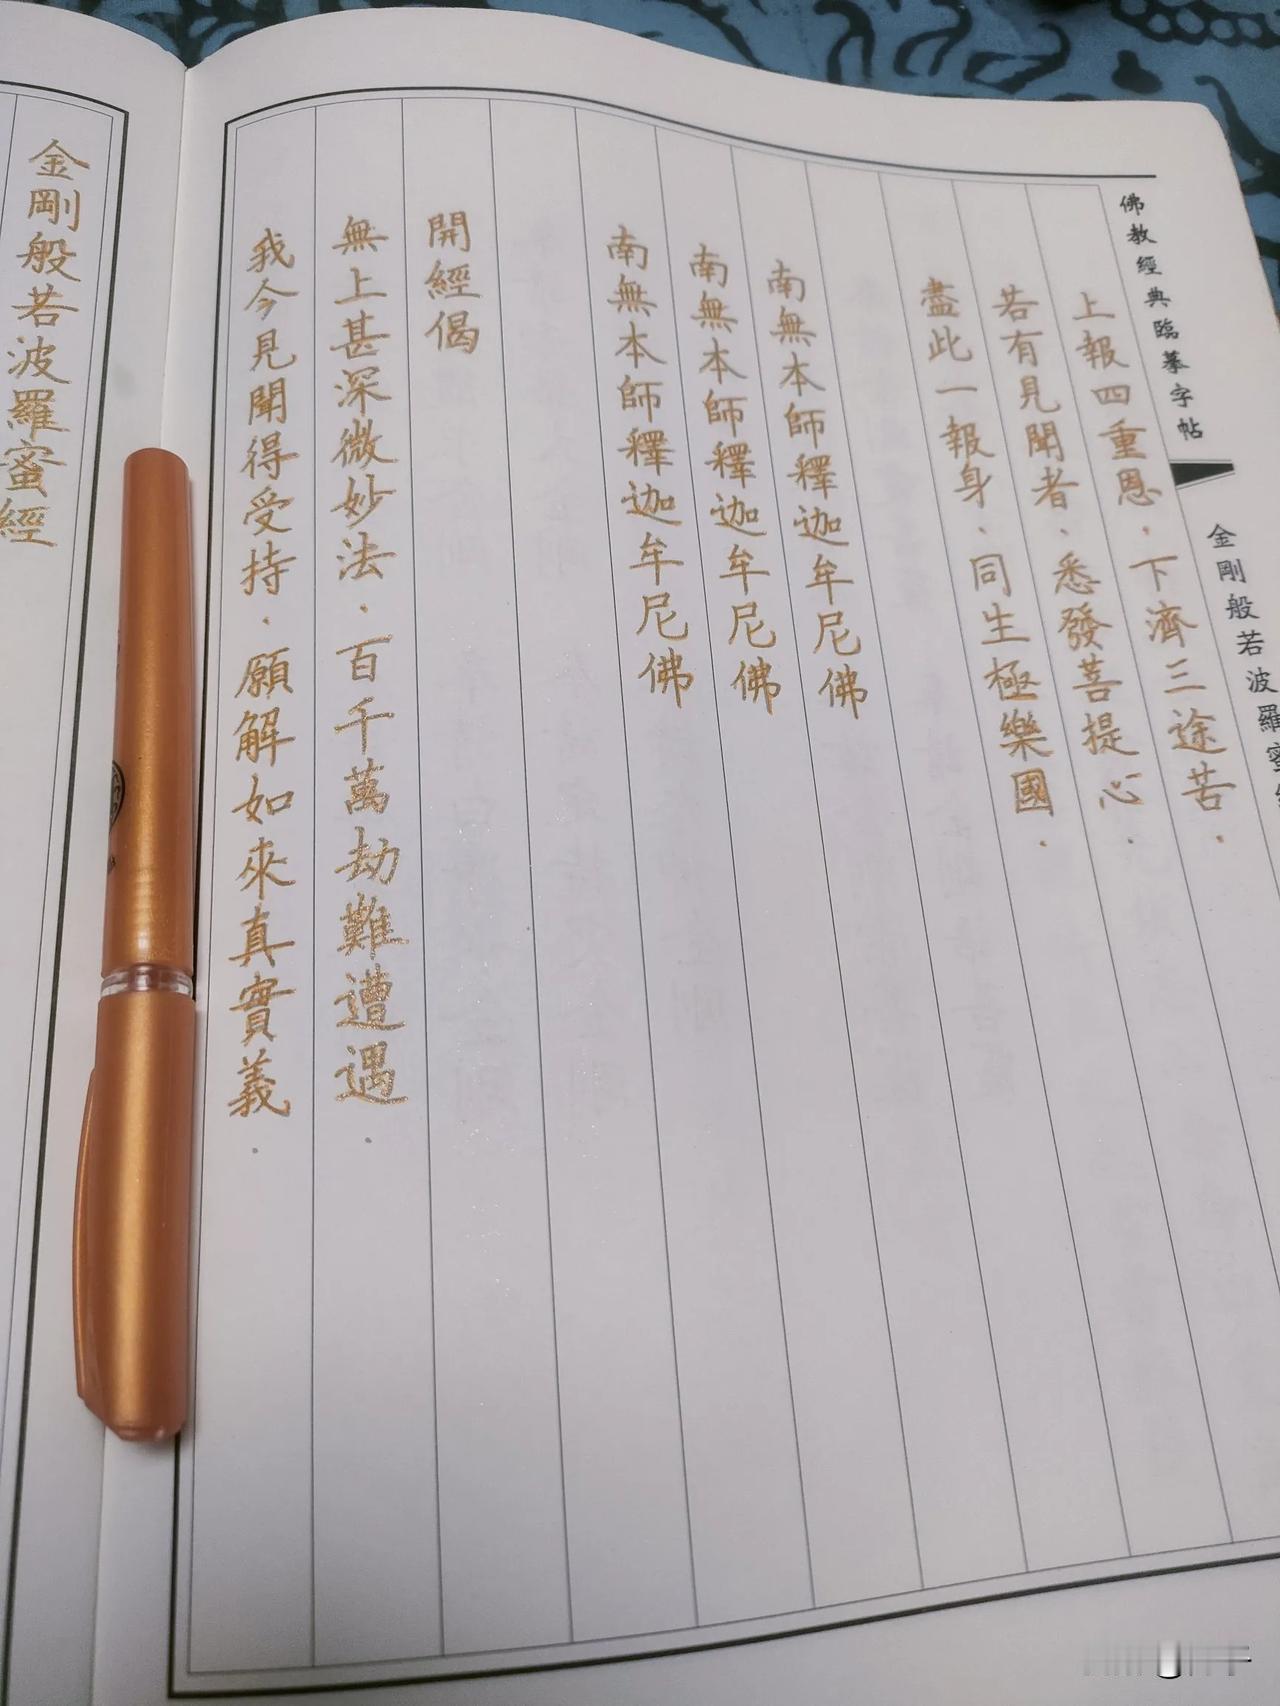 佛教經典臨摹字帖
金剛般若波羅蜜
上報四重恩.下濟三途苦.
若有見聞者.悉發菩提心.
盡此一報身.同生極樂國.
南無本師釋迦牟尼佛
南無本師釋迦牟尼佛
南無本師釋迦牟尼佛
開經偈
無上甚深微妙法.百千萬劫難遭遇.
我今見聞得受持.願解如來真實義.
金剛般若波羅蜜經